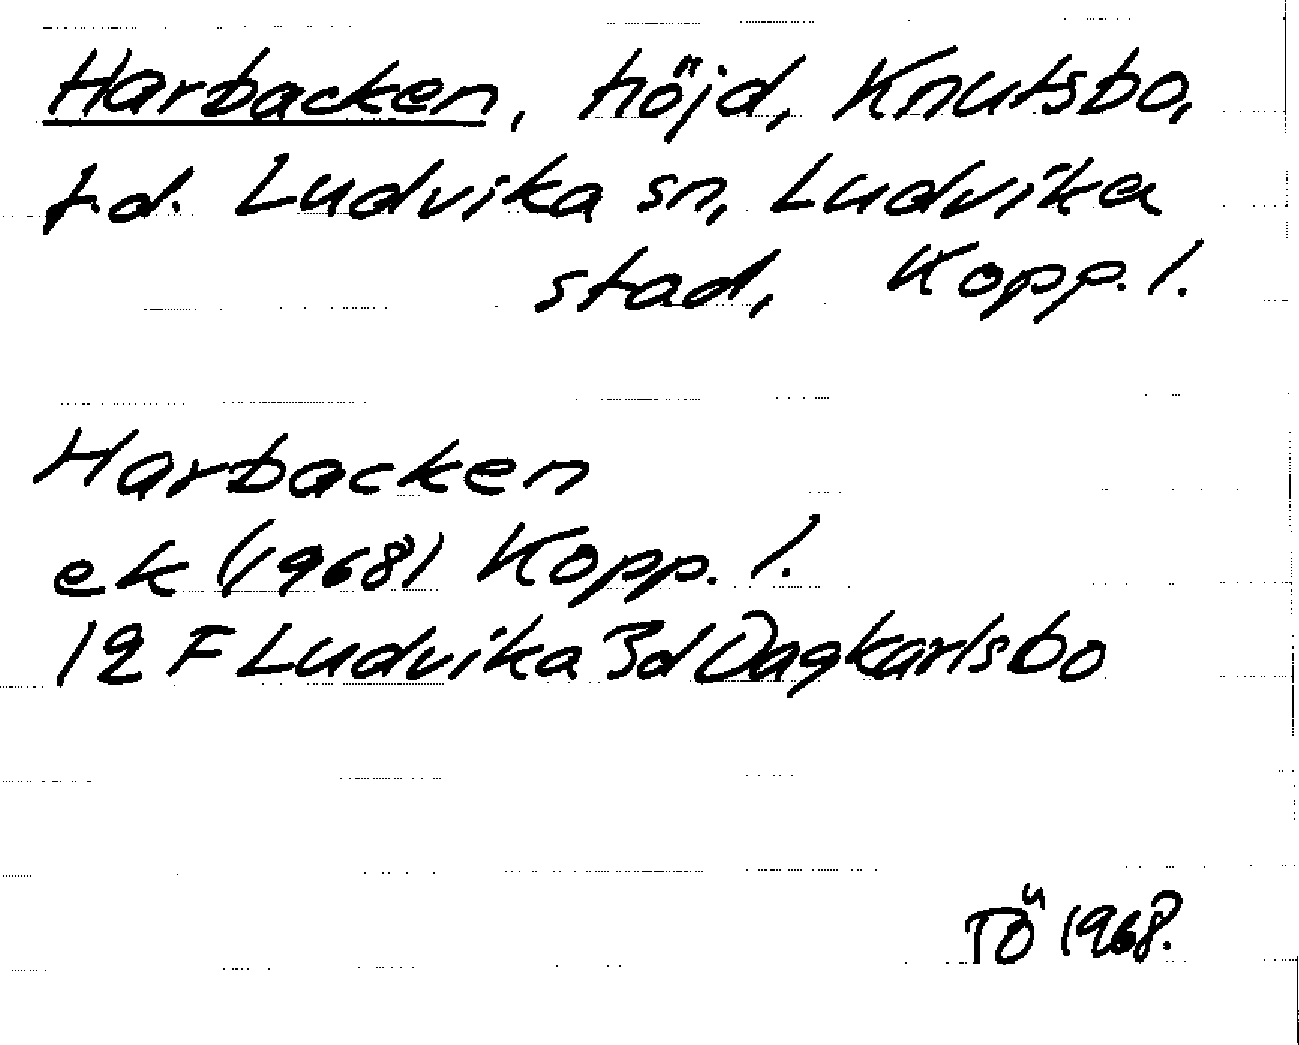 Harbacken, höjd, Knutsbo,
f.d. Ludvika sn, Ludvika
stad, Kopp. l.
Harbacken
ek (1968) Kopp. l.
12 F Ludvika 3d Dagkarlsbo
TÖ 1968.